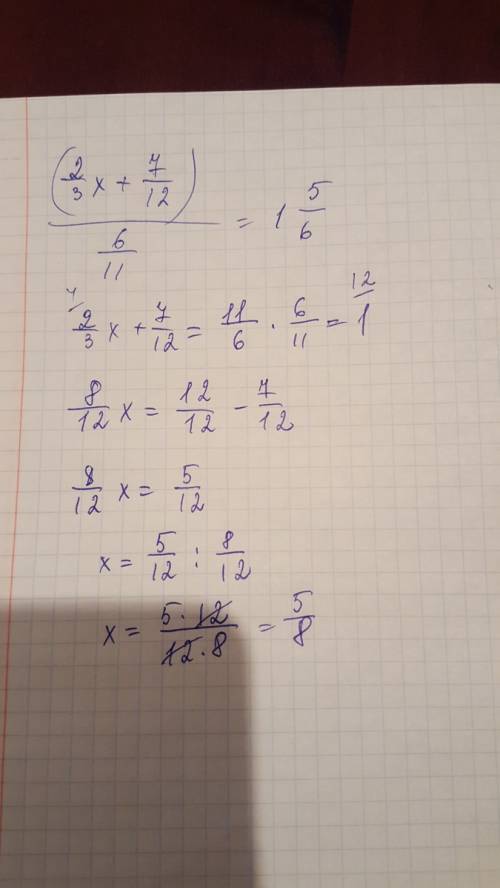 (2/3 x + 7/12) / (6/11) = 1 5/6
4/ 2/3 x + 7/12 = 11/6 · 6/11 = 12/ 1
8/12 x = 12/12 - 7/12
8/12 x = 5/12
x = 5/12 : 8/12
x = 5·12 / 12·8 = 5/8